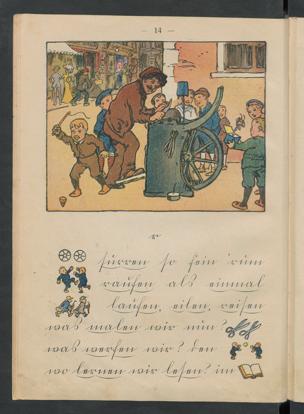 – 14 –
r
surren so fein 'rum
raufen als einmal
laufen, eilen, reisen
was malen wir nun?
was werfen wir? den
wo lernen wir lesen? im